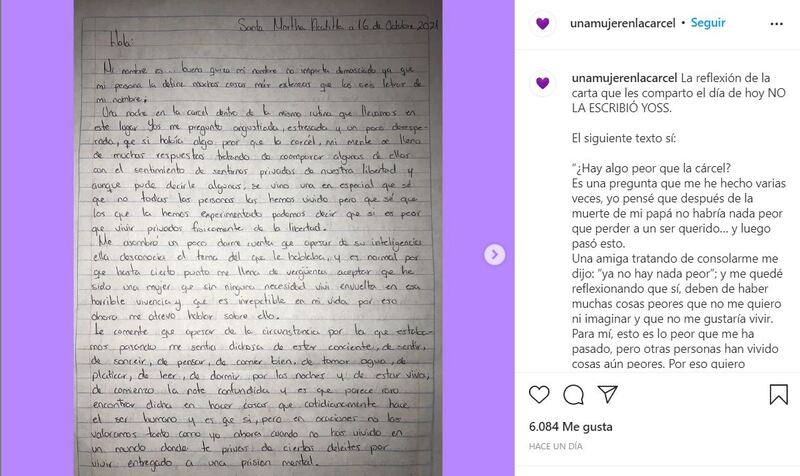 Santa Martha Acatitla a 16 de Octubre 2021
Hola:
Mi nombre es... bueno quiza mi nombre no importa demasiado ya que
mi persona la define muchas cosas más extensas que las seis letras de
mi nombre.
Una noche en la carcel dentro de la misma rutina que llevamos en
este lugar Yos me pregunto angustiada, estresada y un poco desespe-
rada, que si había algo peor que la carcél, mi mente se llena
de muchas respuestas tratando de coomparar algunas de ellas
con el sentimiento de sentirnos privadas de nuestra libertad y
aunque pude decirle algunas, se vino una en especial que sé
que no todas las personas las hemos vivido pero que sé que
los que la hemos experimentado podemos decir que si es peor
que vivir privados fisicamente de la libertad.
Me asombró un poco darme cuenta que apesar de su inteligencia
ella desconocia el tema del que le hablaba, y es normal por
que hasta cierto punto me llena de vergüenza aceptar que he
sido una mujer que sin ninguna necesidad vivi envuelta en esa
horrible vivencia y que es irrepetible en mi vida por eso
ahora me atrevo hablar sobre ello.
Le comente que apesar de la circunstancia por la que estaba-
mos pasando me sentia dichosa de estar conciente, de sentir,
de sonreir, de pensar, de comer bien, de tomar agua, de
platicar, de leer, de dormir por las noches y de estar viva,
de comienzo la note confundida y es que parece raro
encontrar dicha en hacer cosas que cotidianamente hace
el ser humano y es que si, pero en ocaciones no las
valoramos tanto como yo ahora cuando no has vivido en
un mundo donde te privas de ciertos deleites por
vivir entregado a una prision mental.
unamujerenlacarcel • Seguir
unamujerenlacarcel La reflexión de la
carta que les comparto el día de hoy NO
LA ESCRIBIÓ YOSS.
El siguiente texto sí:
"¿Hay algo peor que la cárcel?
Es una pregunta que me he hecho varias
veces, yo pensé que después de la
muerte de mi papá no habría nada peor
que perder a un ser querido... y luego
pasó esto.
Una amiga tratando de consolarme me
dijo: "ya no hay nada peor"; y me quedé
reflexionando que sí, deben de haber
muchas cosas peores que no me quiero
ni imaginar y que no me gustaría vivir.
Para mí, esto es lo peor que me ha
pasado, pero otras personas han vivido
cosas aún peores. Por eso quiero
6.084 Me gusta
HACE UN DÍA